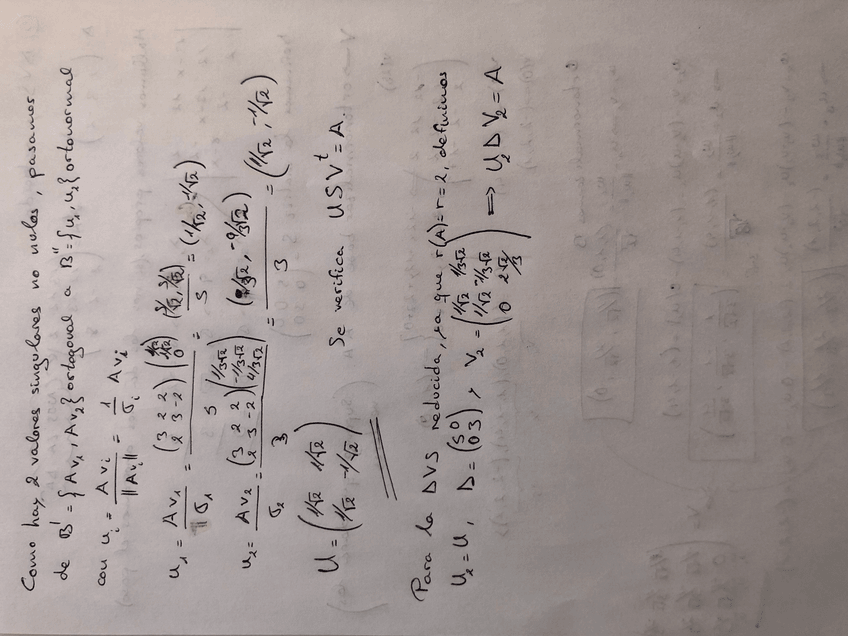 Como hay 2 valores singulares no nulos, pasamos
de B' = {Av₁, Av₂} ortogonal a B'' = {u₁, u₂} ortonormal
con uᵢ = Avᵢ / ||Avᵢ|| = 1/σᵢ Avᵢ
u₁ = Av₁ / σ₁ = (3 2 2; 2 3 -2) (1/√2; 1/√2; 0) / 5 = (5/√2, 5/√2) / 5 = (1/√2, -1/√2)
u₂ = Av₂ / σ₂ = (3 2 2; 2 3 -2) (1/3√2; -1/3√2; 4/3√2) / 3 = (9/3√2, -9/3√2) / 3 = (1/√2, -1/√2)
U = (1/√2 1/√2; 1/√2 -1/√2) Se verifica USVᵗ = A.
Para la DVS reducida, ya que r(A) = r = 2, definimos
U₂ = U, D = (5 0; 0 3), V₂ = (1/√2 1/3√2; 1/√2 -1/3√2; 0 2√2/3) ⟹ U₂ D V₂ = A